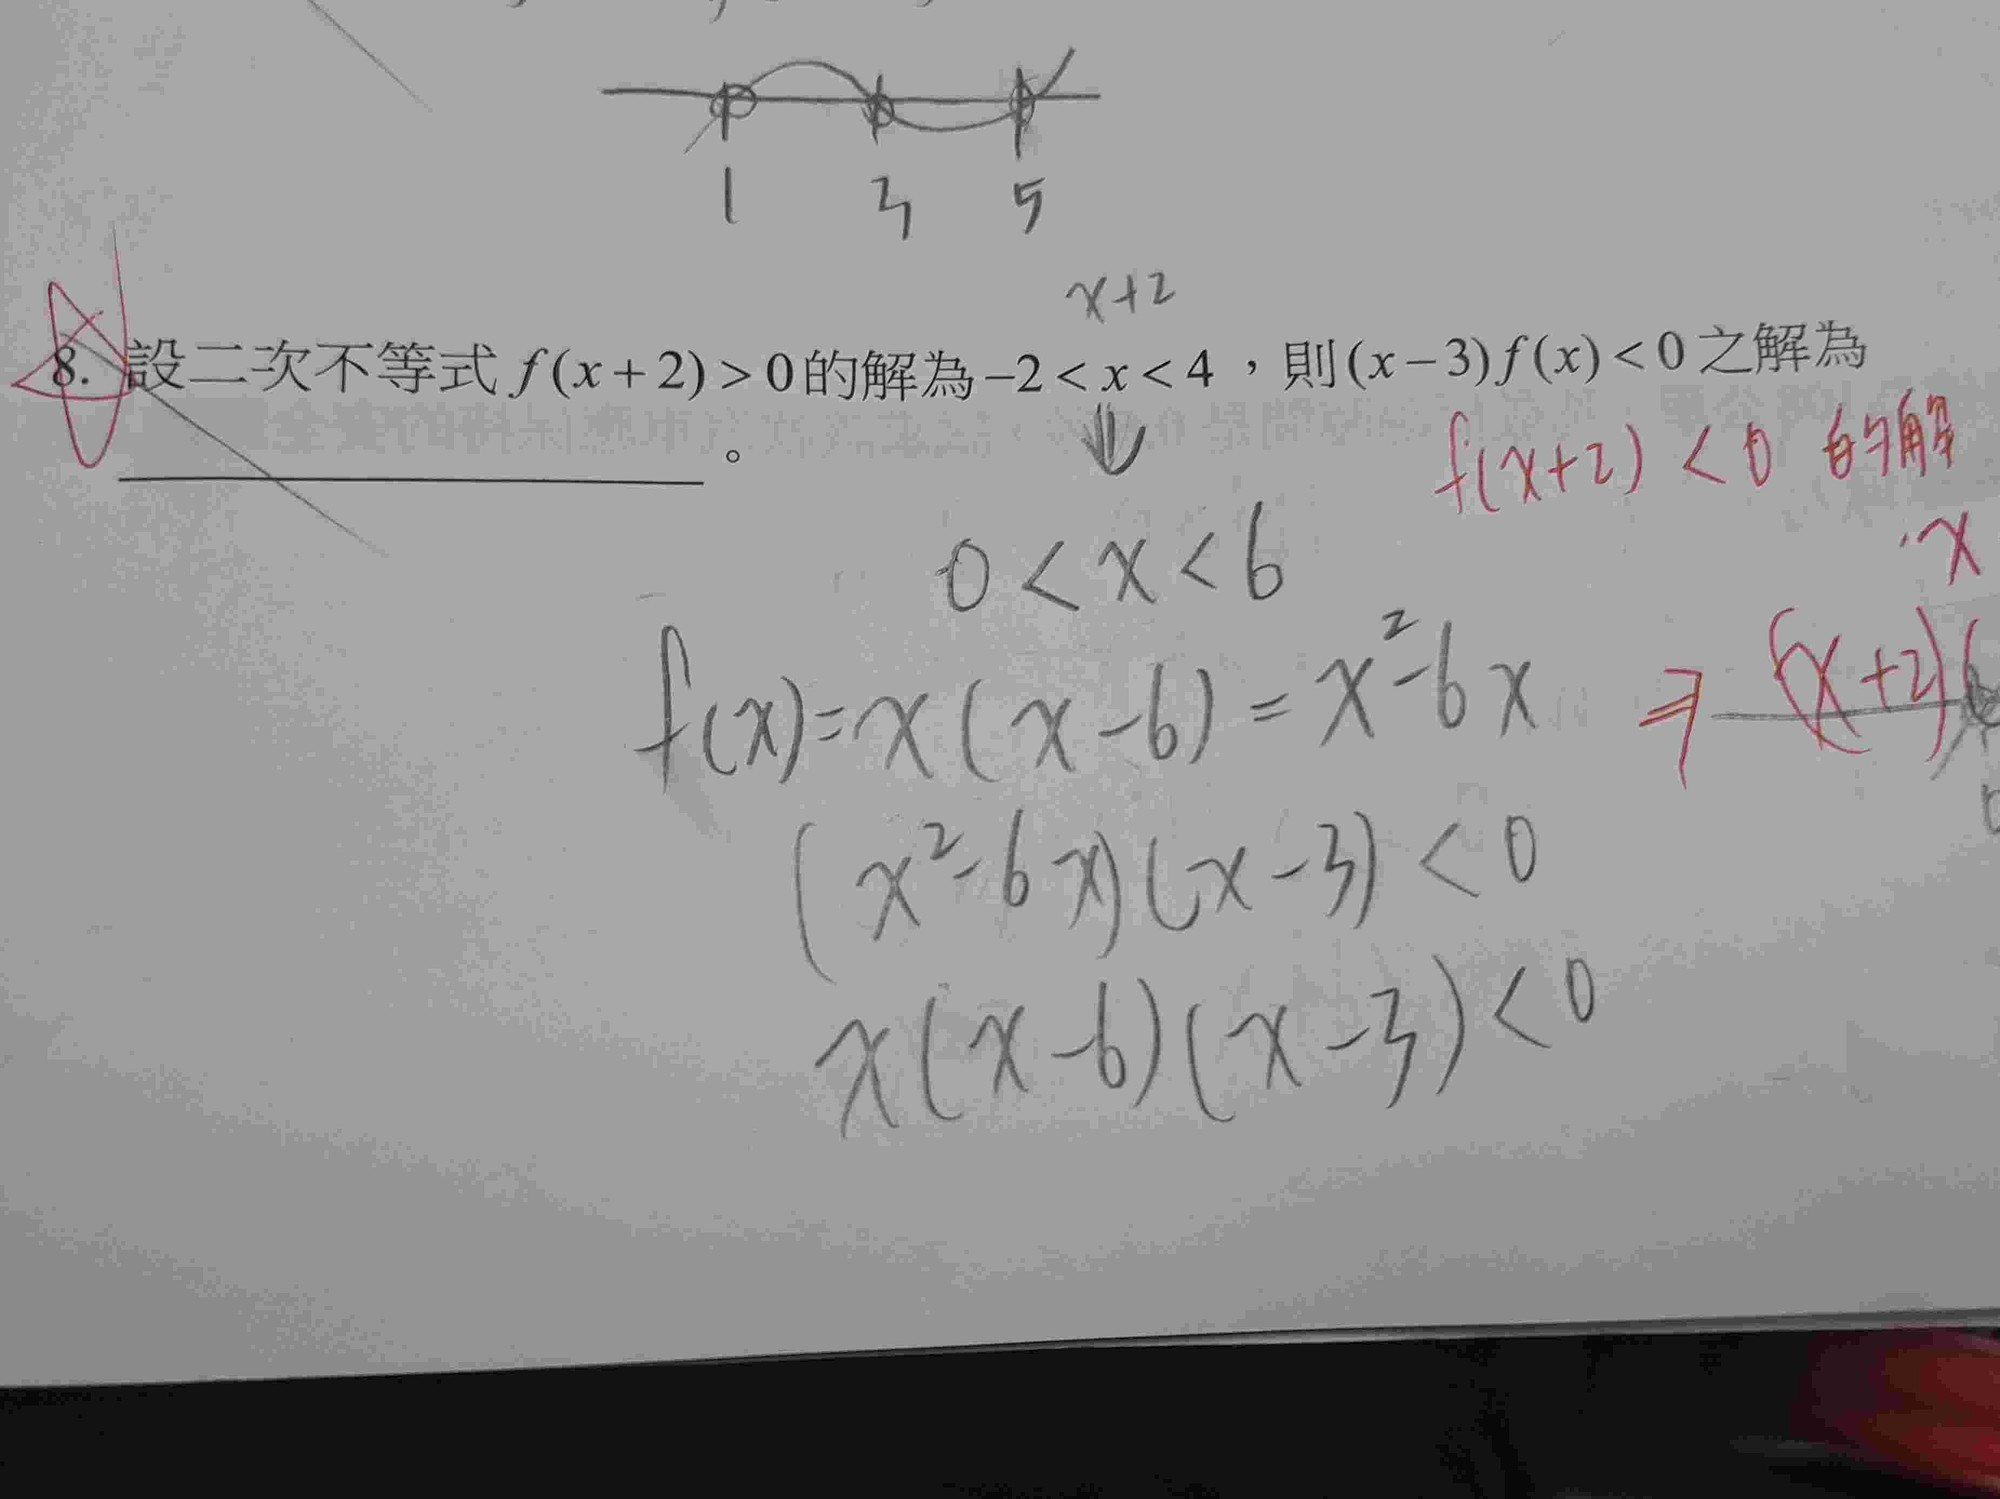 1 3 5
x+2
8. 設二次不等式 f(x+2)>0的解為 -2<x<4，則(x-3)f(x)<0之解為
。
f(x+2)<0 的解
0<x<6
x
f(x)=x(x-6)=x²-6x ⇒ (x+2)(
(x²-6x)(x-3)<0
x(x-6)(x-3)<0